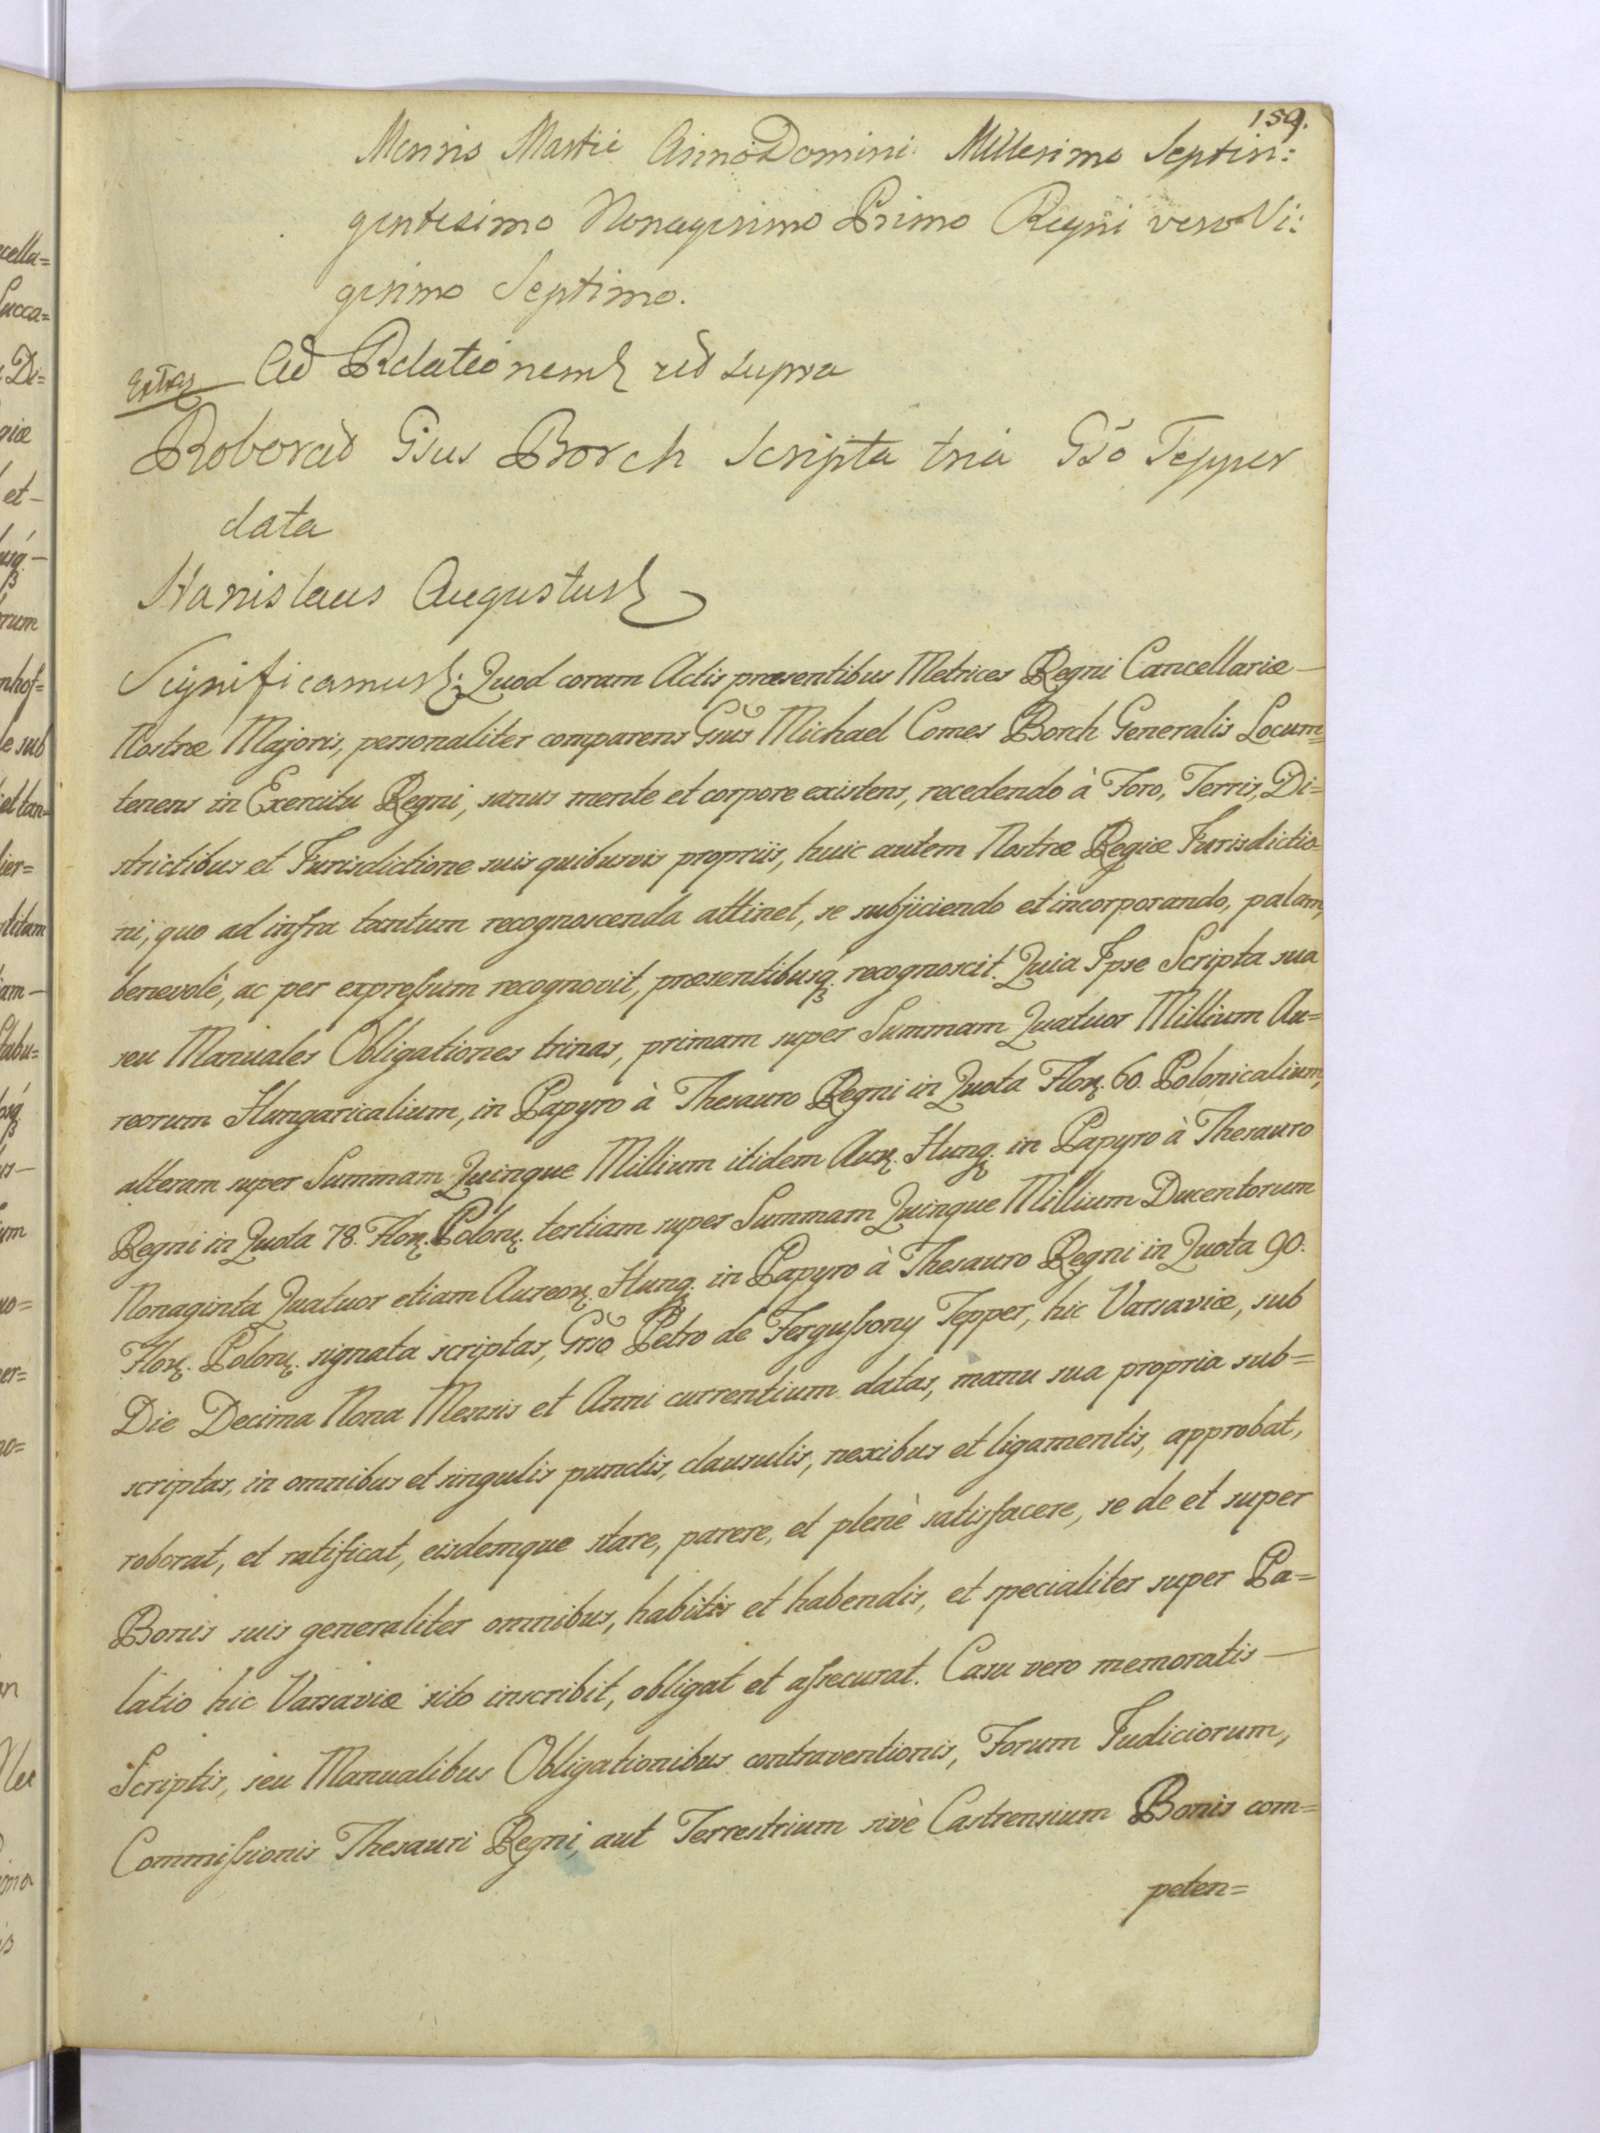 159.
Mensis Martii Anno Domini Millesimo Septin:
gentesimo Nonagesimo Primo Regni vero Vi:
gesimo Septimo.
Ad Relationem ut supra
Roborat Gsus Borch Scripta tria Gso Tepper
data
Stanislaus Augustus
Significamus: Quod coram Actis præsentibus Metrices Regni Cancellariæ
Nostræ Majoris, personaliter comparens Gsus Michael Comes Borch Generalis Locum=
tenens in Exercitu Regni, sanus mente et corpore existens, recedendo à Foro, Terris, Di=
strictibus et Jurisdictione suis quibusvis propriis, huic autem Nostræ Regiæ Jurisdictio=
ni, quo ad infra tantum recognoscenda attinet, se subjiciendo et incorporando, palam,
benevolè, ac per expreſsum recognovit, præsentibusq; recognoscit. Quia Ipse Scripta sua
seu Manuales Obligationes trinas, primam super Summam Quatuor Millium Au=
reorum Hungaricalium, in Papyro à Thesauro Regni in Quota Flor. 60. Polonicalium,
alteram super Summam Quinque Millium itidem Aur. Hung. in Papyro à Thesauro
Regni in Quota 78. Flor. Polon. tertiam super Summam Quinque Millium Ducentorum
Nonaginta Quatuor etiam Aureor. Hung. in Papyro à Thesauro Regni in Quota 90.
Flor. Polon. signata scriptas, Gso Petro de Ferguſsony Tepper, hic Varsaviæ, sub
Die Decima Nona Mensis et Anni currentium datas, manu sua propria sub=
scriptas, in omnibus et singulis punctis, clausulis, nexibus et ligamentis, approbat,
roborat, et ratificat, eisdemque stare, parere, et plenè satisfacere, se de et super
Bonis suis generaliter omnibus, habitis et habendis, et specialiter super Pa=
latio hic Varsaviæ sito inscribit, obligat et aſsecurat. Casu vero memoratis
Scriptis, seu Manualibus Obligationibus contraventionis, Forum Judiciorum,
Commiſsionis Thesauri Regni, aut Terrestrium sivè Castrensium Bonis com=
peten=